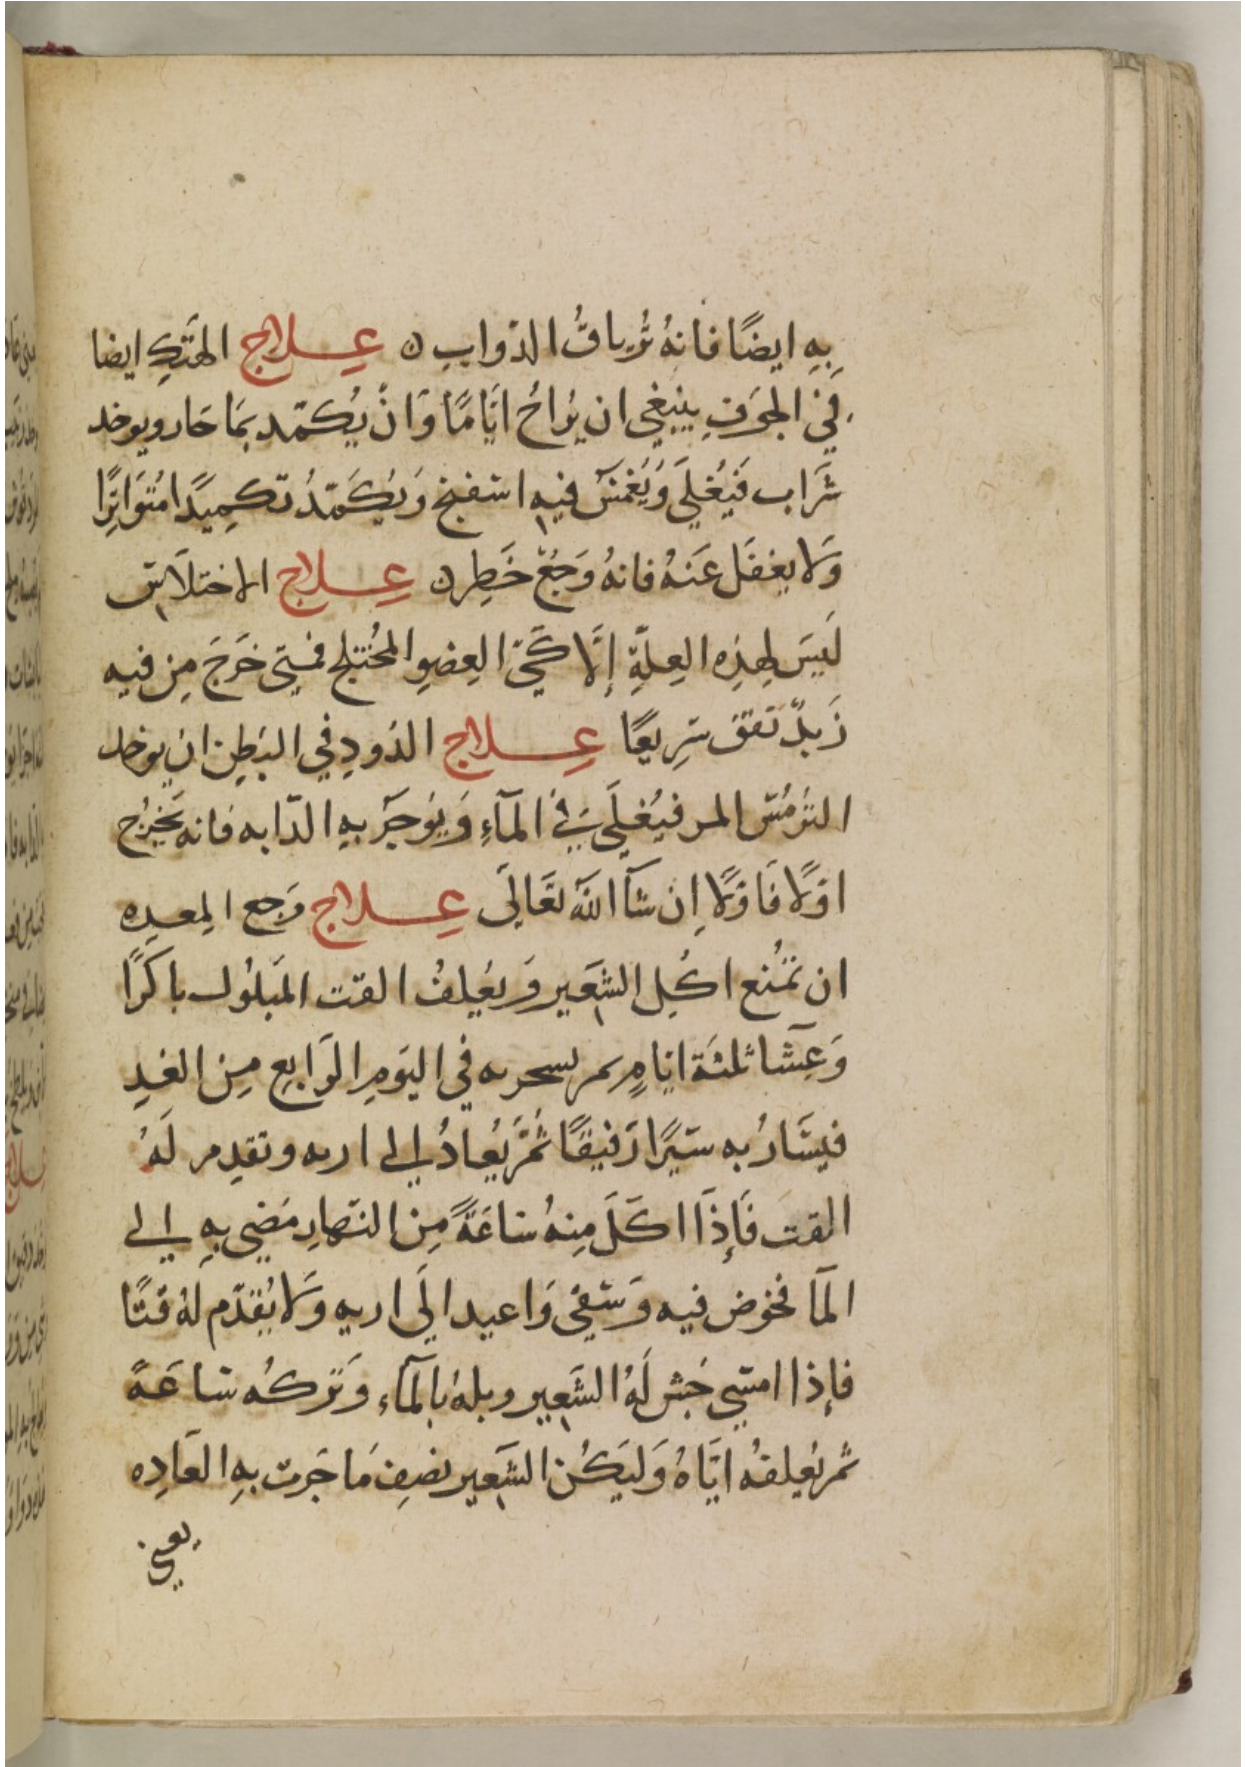 بِهِ ايضًا فَانهُ تُرياقُ الدّوابِ ن عِلاج الهَتكِ ايضا
في الجَوفِ ينبغي ان يُراحُ ايَامًا وَانْ يُكمّد بمَا حَار ويوخد
شَراب فَيُغلَي وَيُغمسُ فيهِ اسفنج وَيُكَمّدُ تكمِيدًا مُتوَاتِرًا
وَلا يغفَل عَنهُ فانهُ وَجَعٌ خَطِر ن عِلاج الاختلاس
لَيسَ لهذِه العِلّةِ إلَّا كَيّ العِضوِ المُختلج فمتي خَرَجَ مِن فيه
زَبدٌ نَفق سَرِيعًا عِلاج الدّودِ في البَطِن ان يوخد
التُرمُسّ المر فيُغلَي في المَآءِ وَيوجَر بهِ الدّابه فانه يَخرُج
اوّلًا فَاوّلا اِن شآ اللّه تعَالَى عِلاج وَجع المِعدِه
ان تمُنع اكُل الشعَير وَيعُلفُ القت المَبلُول باكرًا
وَعِشَآ ثلثَة ايامٍ ثمر بسحر به في اليَومِ الرَابِع مِن الغدِ
فيسَارُ به سَيرًا رَفيقًا ثُمَّ يُعادُ الي اريه وتقدِم لَهُ
القت فَإذَا اكَلَ مِنهُ سَاعَةً مِن النّهارِ مَضي بهِ الي
المَآ فخوض فيه وَسَقي وَاعيد الَي اريه وَلا يُقدّم لهُ قتًا
فاِذا امسَي جُش لَهُ الشَعِير وبلهُ بالمآءِ وَتَركُه سَاعَةً
ثمر يُعلفُه ايَاهُ وَليَكُن الشَعير نصِف مَا جَرت بهِ العَادِه
يعني